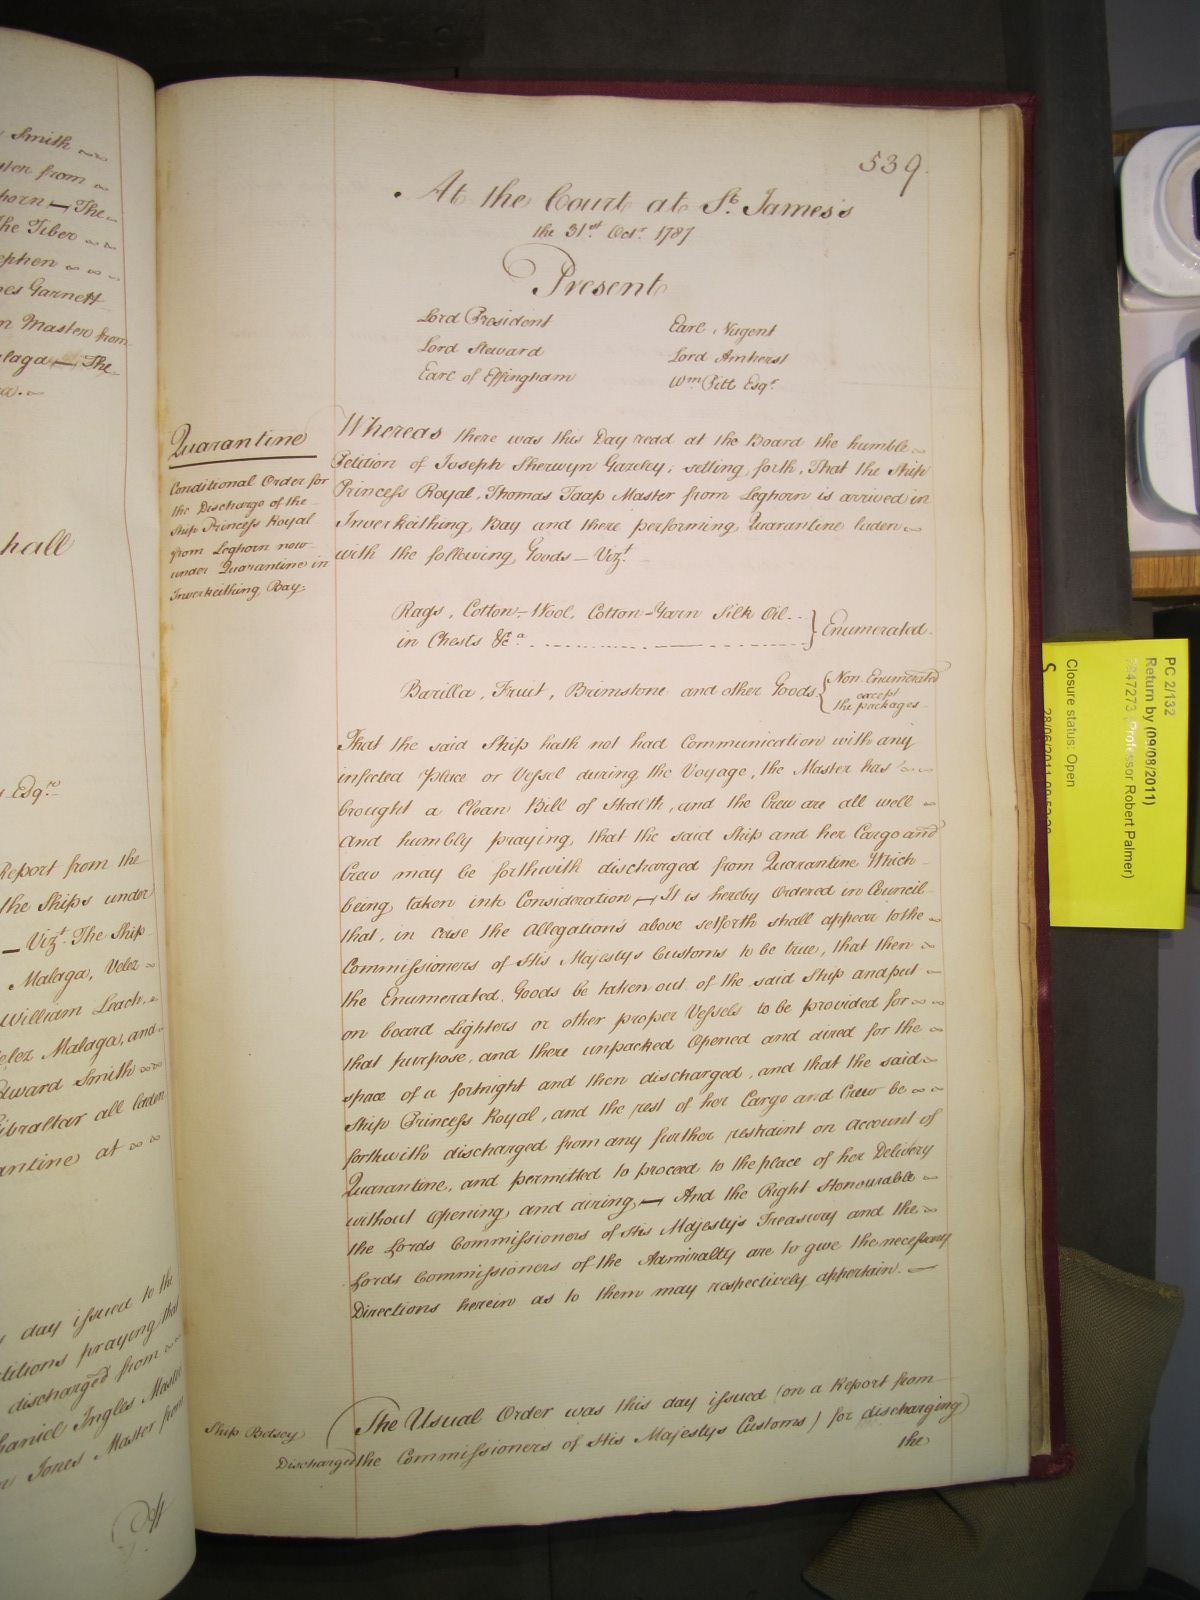 Smith
from
horn — The
the Tiber
ephen
Garnett
n Master from
alaga — The
hall
Esqre
Report from the
the Ships under
— Vizt. The Ship
Malaga, Velez
William Leach
elez Malaga, and
Edward Smith
ibraltar all laden
antine at
day issued to the
titions praying that
discharged from
haniel Ingles Master
Jones Master from
At
539.
At the Court at St. James's
the 31st Octr. 1787
Present
Lord President
Earl Nugent
Lord Steward
Lord Amherst
Earl of Effingham
Wm Pitt Esqr.
Quarantine
Conditional Order for
the Discharge of the
Ship Princess Royal
from Leghorn now
under Quarantine in
Inverkeithing Bay.
Whereas there was this Day read at the Board the humble
Petition of Joseph Sherwyn; setting forth, That the Ship
Princess Royal, Thomas Master from Leghorn is arrived in
Inverkeithing Bay and there performing Quarantine laden
with the following Goods — Vizt.
Rags, Cotton-Wool, Cotton-Yarn Silk Oil
in Chests &ca
Enumerated.
Barilla, Fruit, Brimstone and other Goods
Non Enumerated
except
the packages
That the said Ship hath not had Communication with any
infected place or Vessel during the Voyage, the Master has
brought a Clean Bill of Health, and the Crew are all well
And humbly praying, that the said Ship and her Cargo and
Crew may be forthwith discharged from Quarantine Which
being taken into Consideration — It is hereby Ordered in Council
that, in case the Allegations above setforth shall appear to the
Commissioners of His Majestys Customs to be true, that then
the Enumerated Goods be taken out of the said Ship and put
on board Lighters or other proper Vessels to be provided for
that purpose, and there unpacked Opened and aired for the
space of a fortnight and then discharged, and that the said
Ship Princess Royal, and the rest of her Cargo and Crew be
forthwith discharged from any further restraint on account of
Quarantine, and permitted to proceed to the place of her Delivery
without Opening and airing, — And the Right Honourable
the Lords Commissioners of His Majesty's Treasury and the
Lords Commissioners of the Admiralty are to give the necessary
Directions herein as to them may respectively appertain. —
Ship Betsey
Discharged
The Usual Order was this day issued (on a Report from
the Commissioners of His Majestys Customs) for discharging
the
PC 2/132
Return by (09/08/2011)
Professor Robert Palmer)
Closure status: Open
S